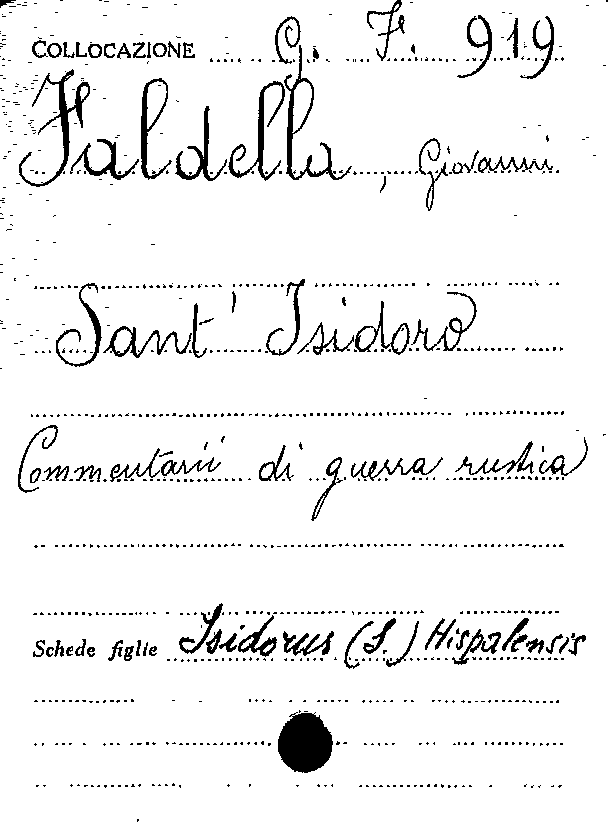 COLLOCAZIONE G. F. 919
Faldella, Giovanni
Sant' Isidoro
Commentarii di guerra rustica
Schede figlie Isidorus (S.) Hispalensis